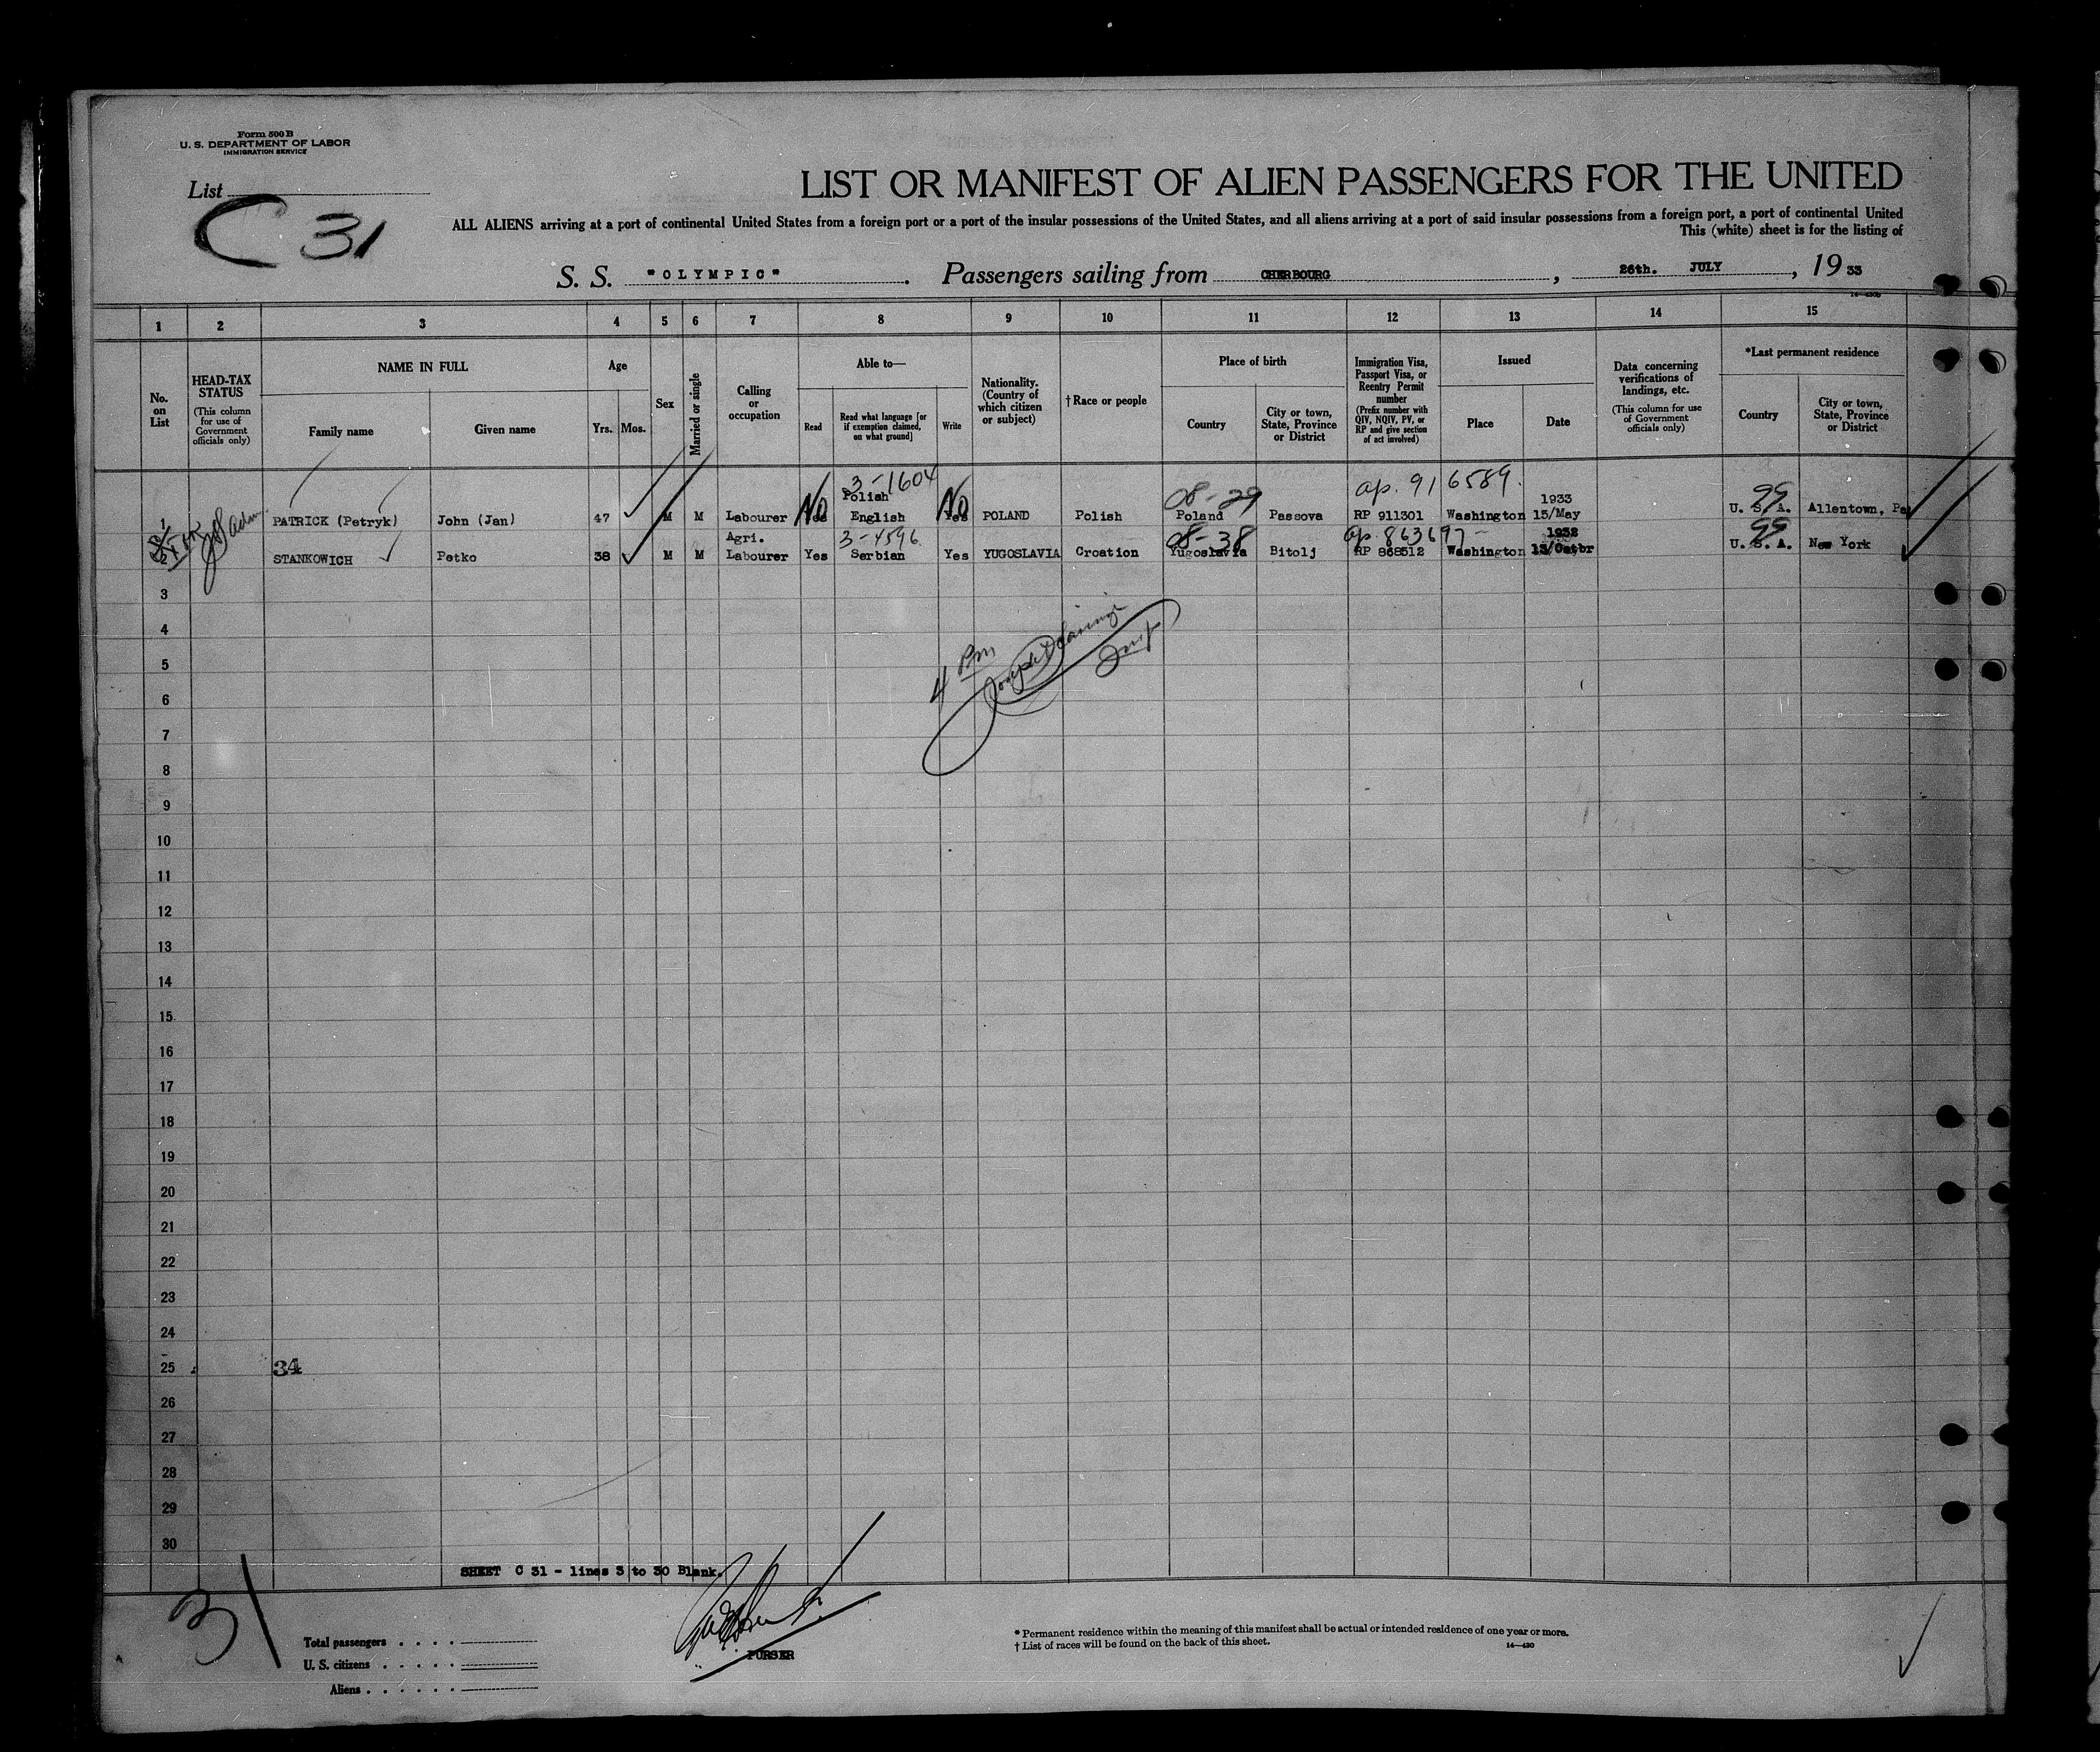 Form 500 B
U. S. DEPARTMENT OF LABOR
IMMIGRATION SERVICE
List
C 31
LIST OR MANIFEST OF ALIEN PASSENGERS FOR THE UNITED
ALL ALIENS arriving at a port of continental United States from a foreign port or a port of the insular possessions of the United States, and all aliens arriving at a port of said insular possessions from a foreign port, a port of continental United
This (white) sheet is for the listing of
S. S. "OLYMPIC". Passengers sailing from CHERBOURG, 26th. JULY, 1933
1 2 3 4 5 6 7 8 9 10 11 12 13 14 15
No. on List
HEAD-TAX STATUS (This column for use of Government officials only)
NAME IN FULL
Family name
Given name
Age
Yrs. Mos.
Sex
Married or single
Calling or occupation
Able to—
Read
Read what language [or if exemption claimed, on what ground]
Write
Nationality. (Country of which citizen or subject)
†Race or people
Place of birth
Country
City or town, State, Province or District
Immigration Visa, Passport Visa, or Reentry Permit number (Prefix number with QIV, NQIV, PV, or RP and give section of act involved)
Issued
Place
Date
Data concerning verifications of landings, etc. (This column for use of Government officials only)
*Last permanent residence
Country
City or town, State, Province or District
3-1604 08-29 ap. 916589. 99
1 PATRICK (Petryk) John (Jan) 47 M M Labourer Yes No Polish English Yes No POLAND Polish Poland Passova RP 911301 Washington 1933 15/May U. S. A. Allentown, Pa
3-4596 08-38 ap. 863697 99
2 STANKOWICH Petko 38 M M Agri. Labourer Yes Serbian Yes YUGOSLAVIA Croation Yugoslavia Bitolj RP 868512 Washington 1932 13/Octbr U. S. A. New York
3
4
4 Pm
5
6
7
8
9
10
11
12
13
14
15
16
17
18
19
20
21
22
23
24
25 34
26
27
28
29
30
SHEET C 31 - lines 3 to 30 Blank.
31
PURSER
Total passengers . . . .
U. S. citizens . . . . .
Aliens . . . . . .
* Permanent residence within the meaning of this manifest shall be actual or intended residence of one year or more.
† List of races will be found on the back of this sheet.
14—430